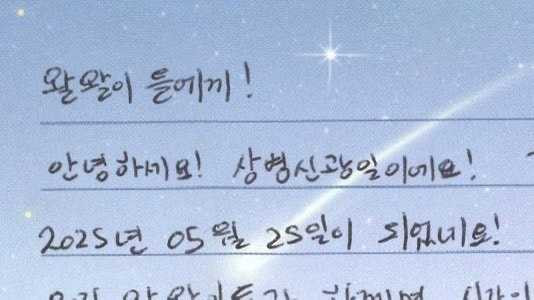 왈왈이 들에게!
안녕하세요! 상병신광일이에요!
2025년 05월 25일이 되었네요!